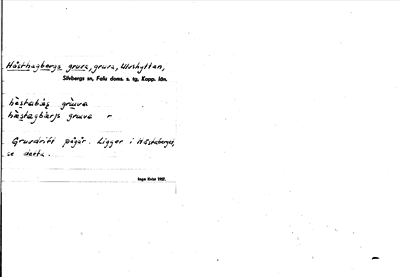 Hästhagbergs gruva, gruva, Ulvshyttan,
Silvbergs sn, Falu doms. s. tg. Kopp. län.
hästabäs gruva
hästagbärjs gruva r
Gruvdrift pågår. Ligger i Hästaberget,
se detta.
Inga Kvist 1937.